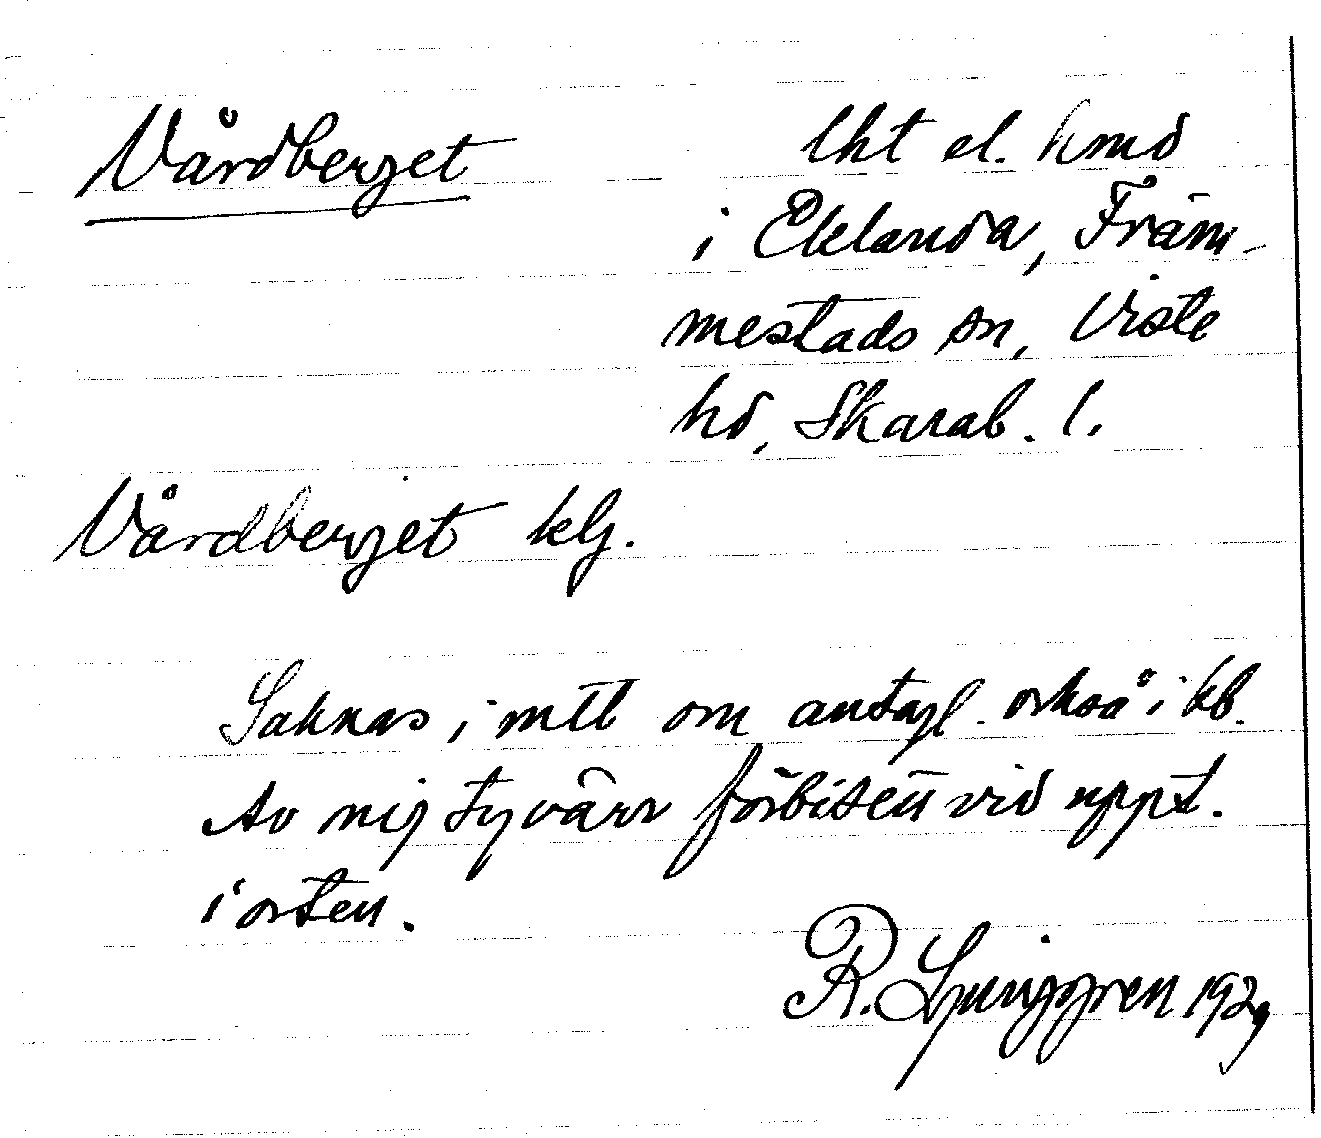 Vårdberget
lht el. hmd
i Eklanda, Främ-
mestads sn, Viste
hd, Skarab. l.
Vårdberget klj.
Saknas i mtl om antagl. också i kb.
Av mig tyvärr förbisett vid uppt.
i orten.
R. Ljunggren 1929